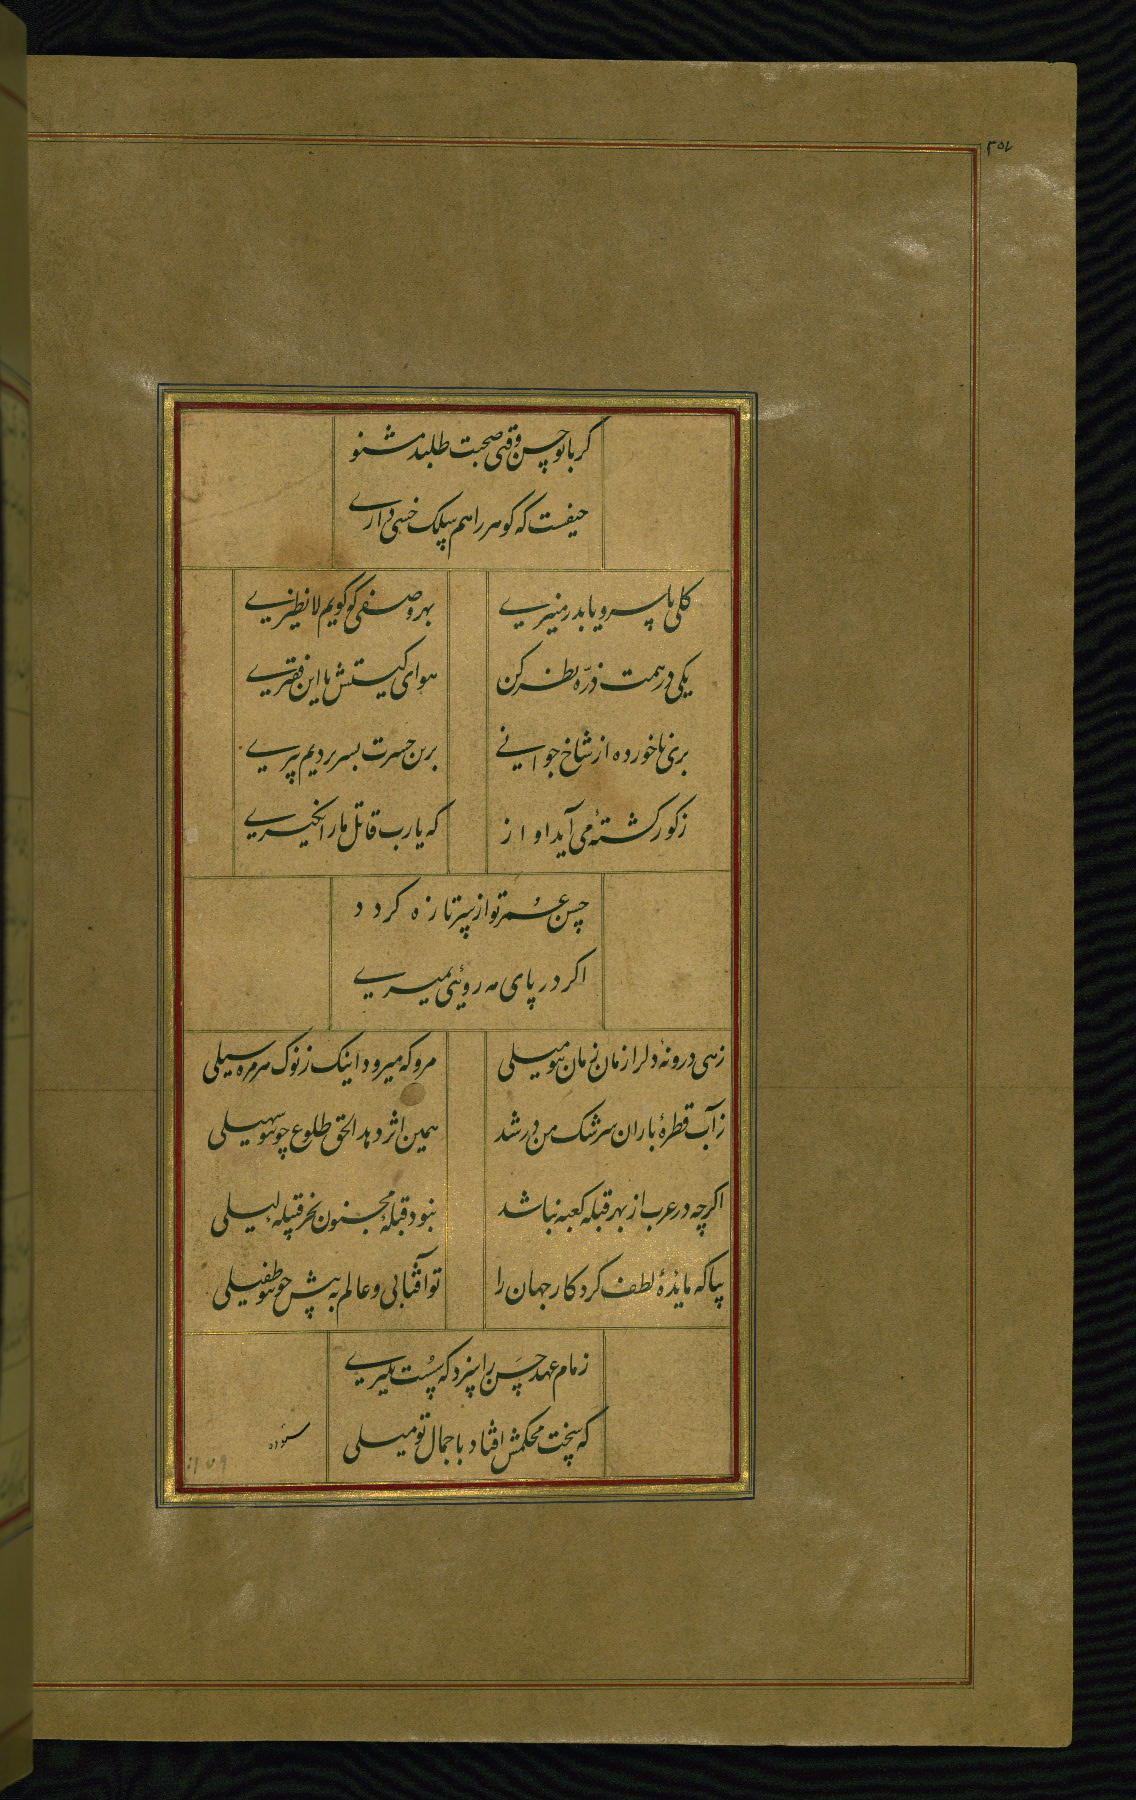 گر با تو حسن وقتی صحبت طلبد مشنو
حیفست که گوهر را هم سلک خسی داری
گلی یا سرو یا بدر منیری
بهر وصفی که گویم لا نظیری
یکی در همت ذره نظر کن
هوای کیستش با این فقیری
بری ناخورده از شاخ جوانی
برین حسرت بسر بردیم پیری
ز گور کشتهٔ می آید اواز
که یارب قاتل ما را نگیری
حسن عمر تو از سر تازه گردد
اگر در پای مه روئی بمیری
زهی درونهٔ دلرا زمان زمان بتو میلی
مرو که میرود اینک ز نوک هر مژه سیلی
ز آب قطرهٔ باران سرشک من در شد
همین اثر دهد الحق طلوع چو تو سهیلی
اگرچه در عرب از بهر قبله کعبه نباشد
نبود قبلهٔ مجنون بجز قبیلهٔ لیلی
بیا که مایدهٔ لطف کرد کار جهان را
تو آفتابی و عالم به پیش چو تو طفیلی
زمام عهد حسن را سزد که سست نگیری
که سخت محکمش افتاد با جمال تو میلی